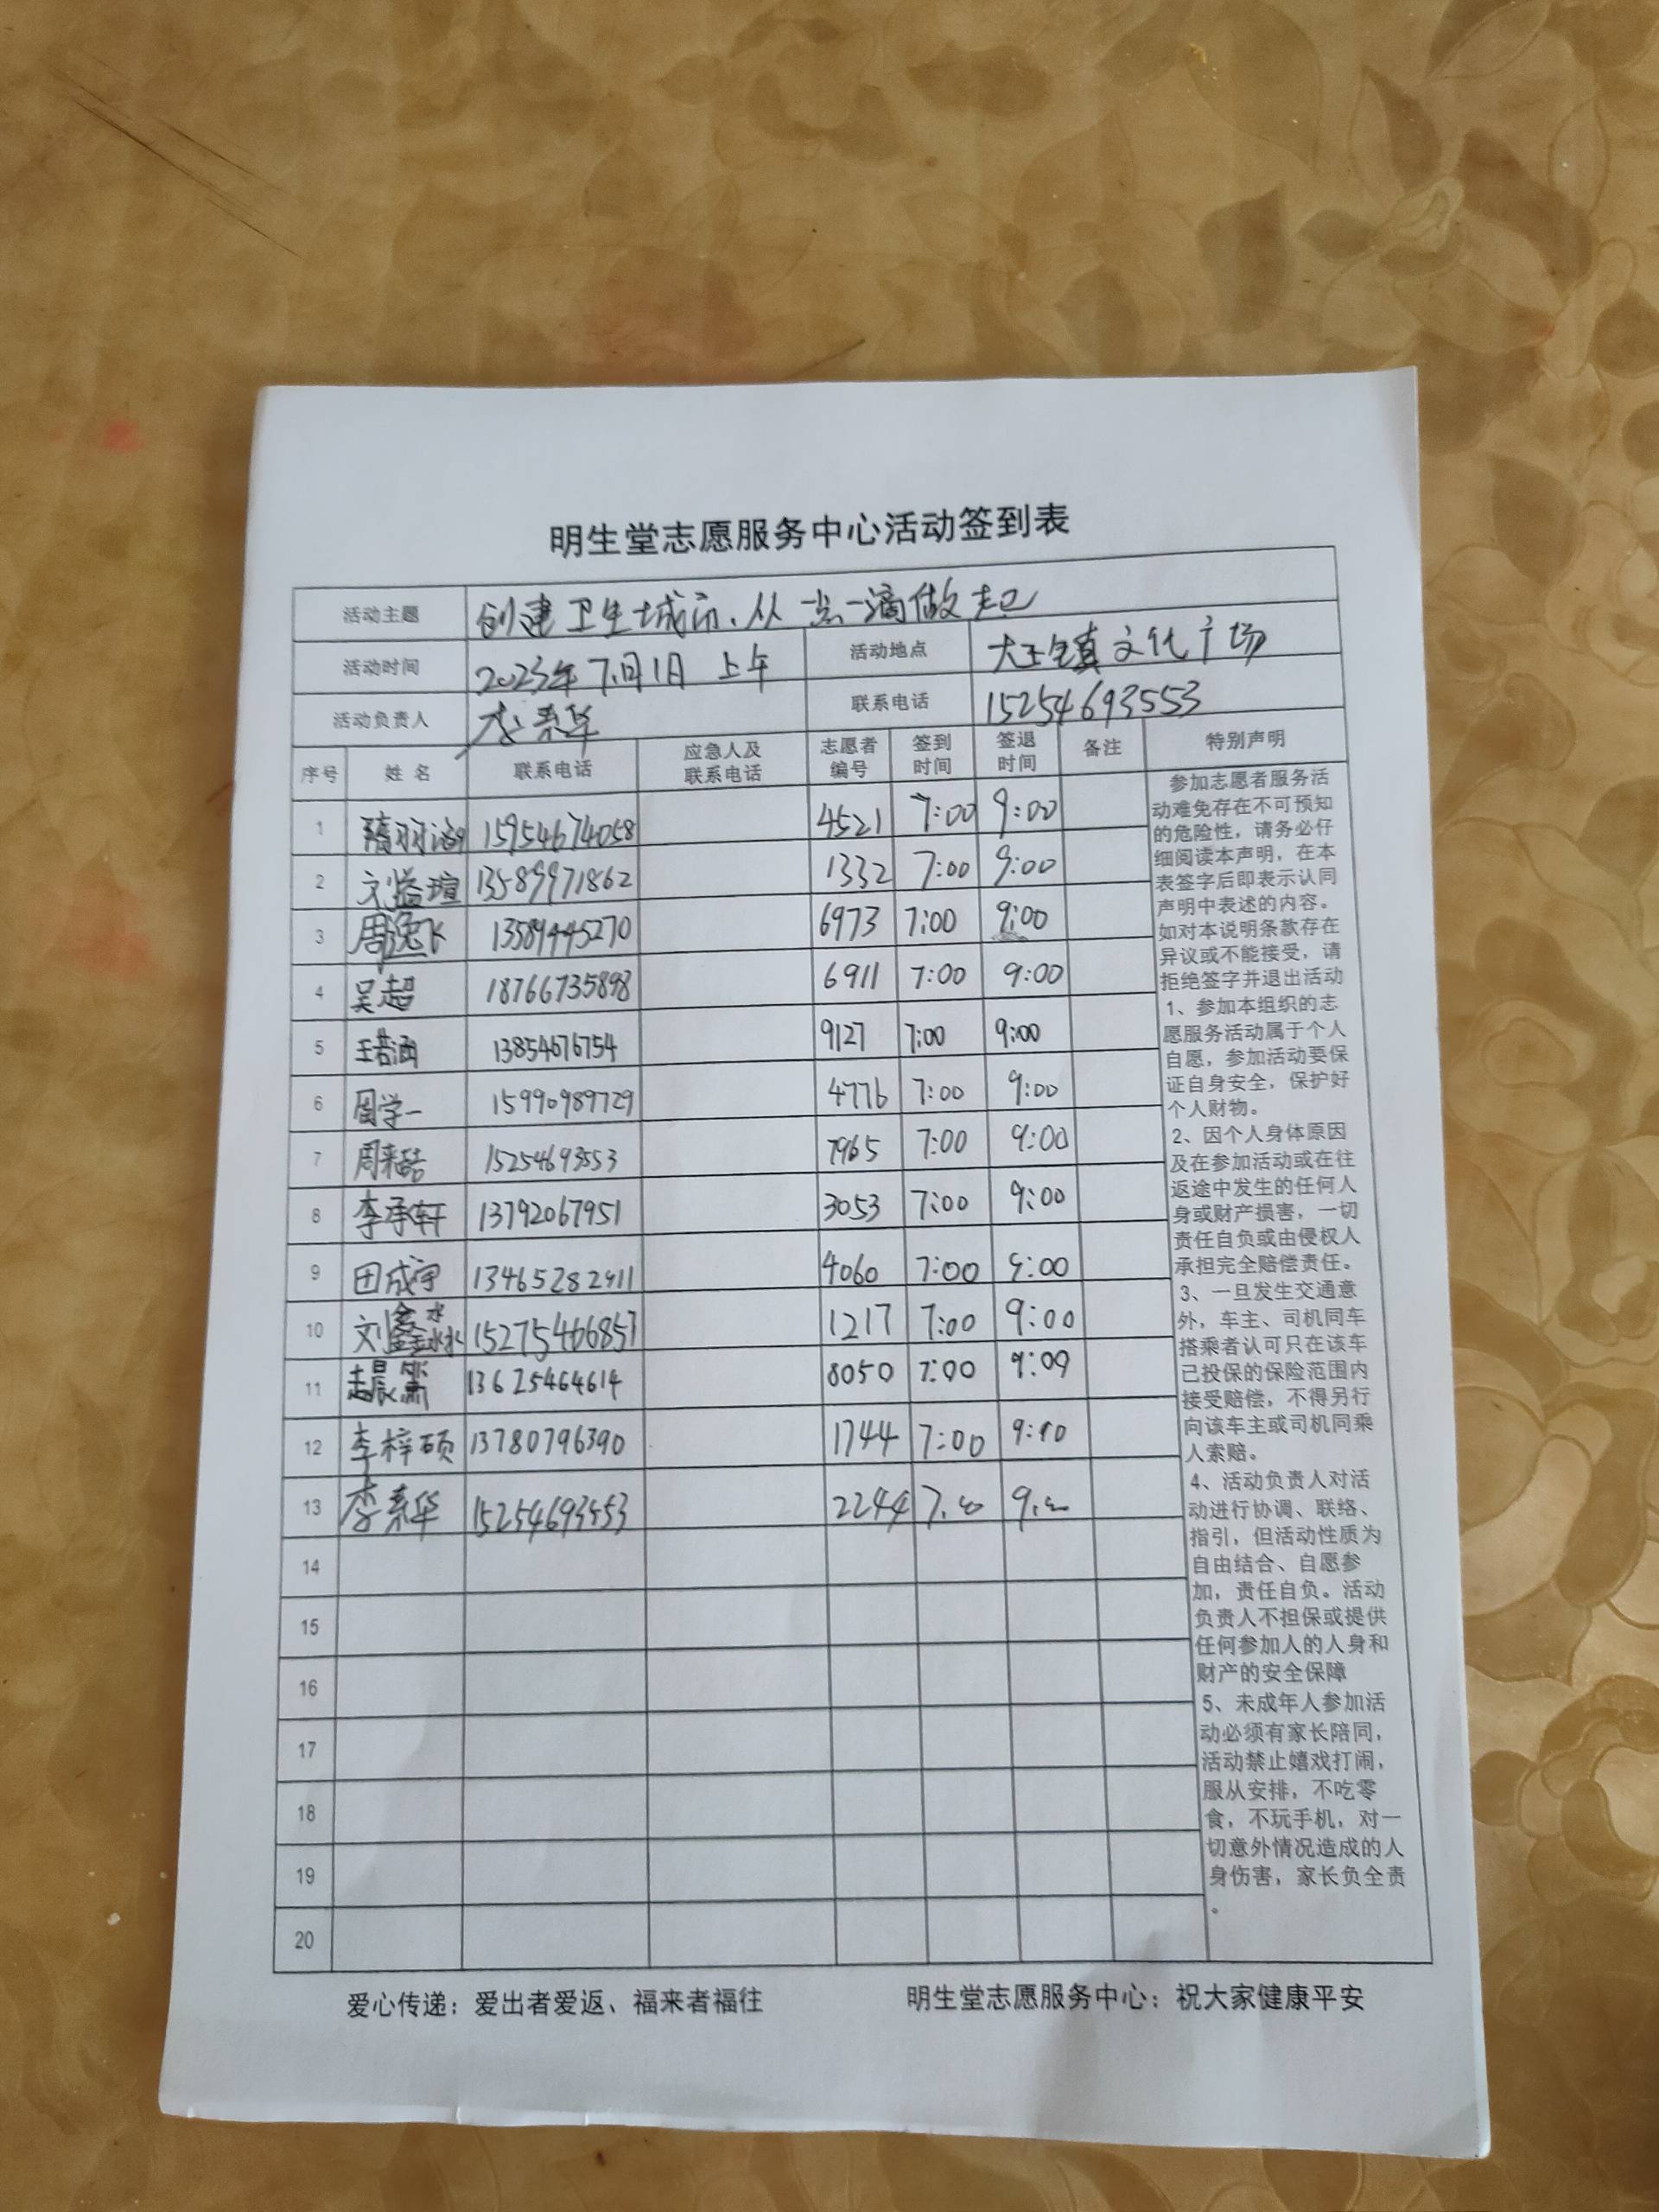 明生堂志愿服务中心活动签到表
活动主题 创建卫生城市、从一点一滴做起
活动时间 2023年7月1日 上午 活动地点 大王镇文化广场
活动负责人 李素华 联系电话 15254693553
序号 姓名 联系电话 应急人及联系电话 志愿者编号 签到时间 签退时间 备注 特别声明
1 隋羽涵 15954674058 4521 7:00 9:00
2 刘益瑄 13589971862 1332 7:00 9:00
3 周逸飞 13589445270 6973 7:00 9:00
4 吴超 18766735898 6911 7:00 9:00
5 王若涵 13854676754 9127 7:00 9:00
6 周学一 15990989729 4776 7:00 9:00
7 周来喆 15254693553 7965 7:00 9:00
8 李承轩 13792067951 3053 7:00 9:00
9 田成宇 13465282911 4060 7:00 9:00
10 刘鑫淼 15275466857 1217 7:00 9:00
11 13625464614 8050 7:00 9:00
12 李梓硕 13780796390 1744 7:00
13 李素华 15254693553 2244
14
15
16
17
18
19
20
参加志愿者服务活
动难免存在不可预知
的危险性，请务必仔
细阅读本声明，在本
表签字后即表示认同
声明中表述的内容。
如对本说明条款存在
异议或不能接受，请
拒绝签字并退出活动
1、参加本组织的志
愿服务活动属于个人
自愿，参加活动要保
证自身安全，保护好
个人财物。
2、因个人身体原因
及在参加活动或在往
返途中发生的任何人
身或财产损害，一切
责任自负或由侵权人
承担完全赔偿责任。
3、一旦发生交通意
外，车主、司机同车
搭乘者认可只在该车
已投保的保险范围内
接受赔偿，不得另行
向该车主或司机同乘
人索赔。
4、活动负责人对活
动进行协调、联络、
指引，但活动性质为
自由结合、自愿参
加，责任自负。活动
负责人不担保或提供
任何参加人的人身和
财产的安全保障
5、未成年人参加活
动必须有家长陪同，
活动禁止嬉戏打闹，
服从安排，不吃零
食，不玩手机，对一
切意外情况造成的人
身伤害，家长负全责
。
爱心传递：爱出者爱返、福来者福往 明生堂志愿服务中心：祝大家健康平安